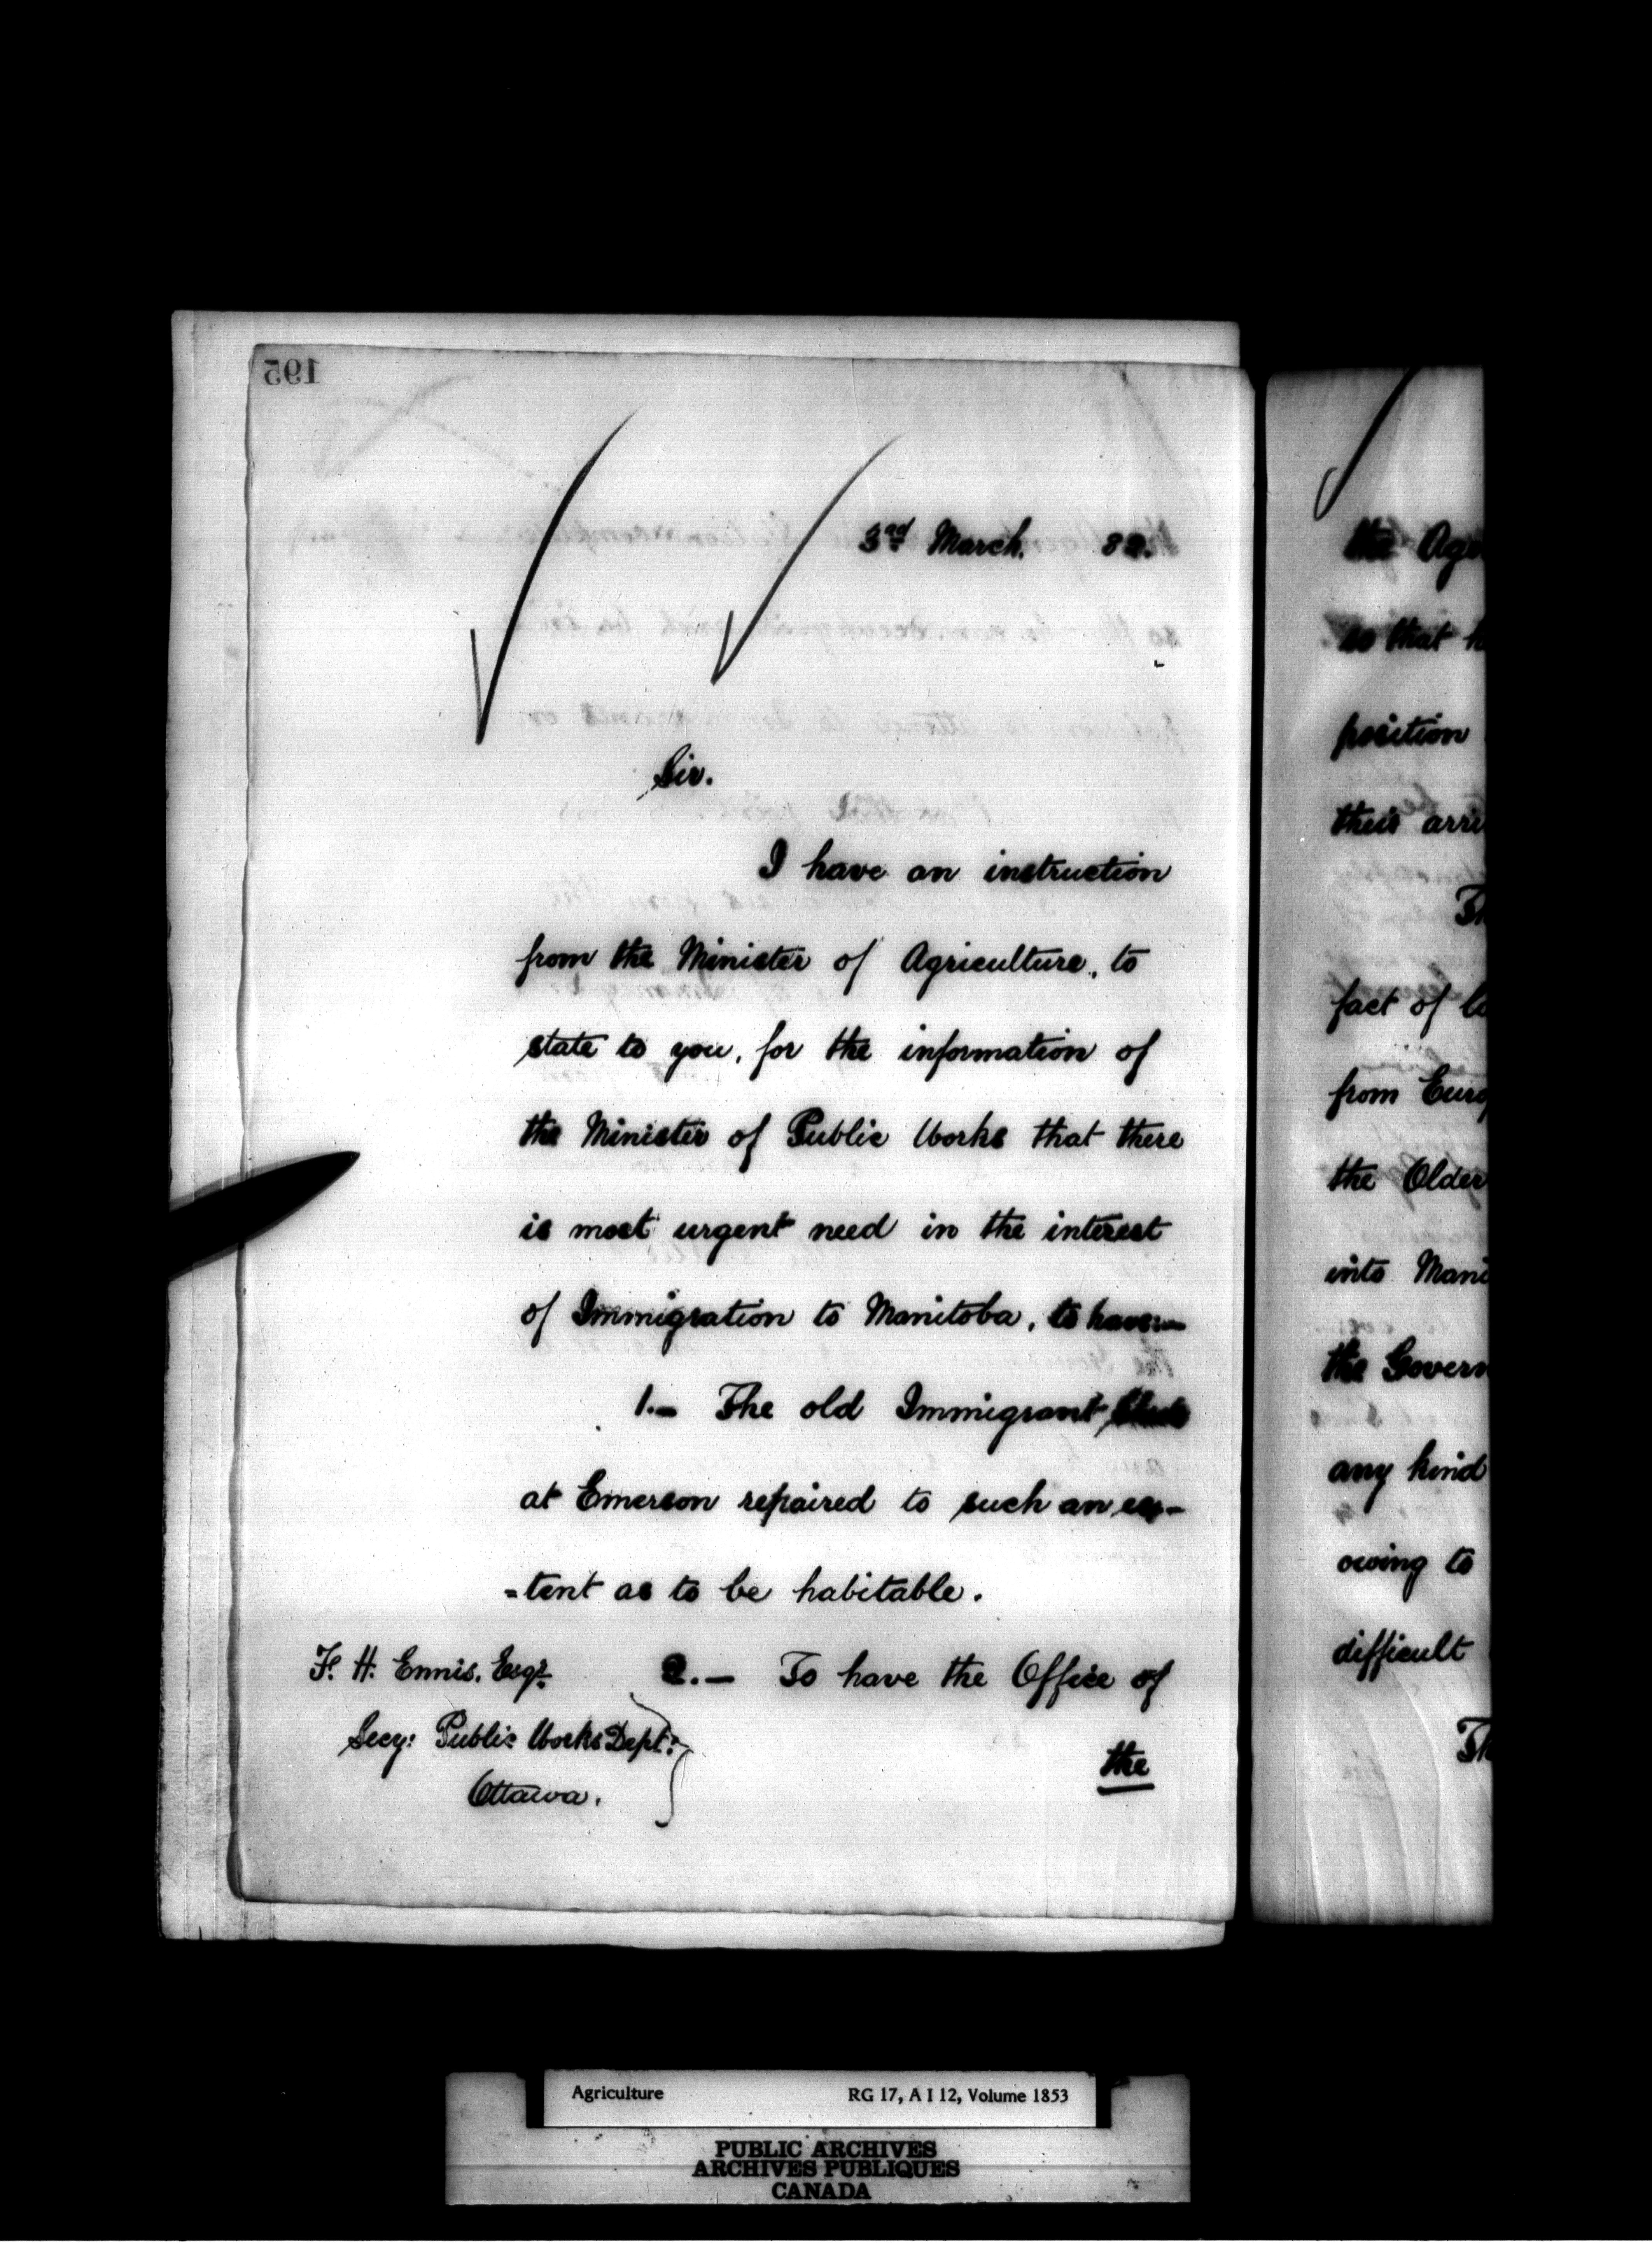 195
3rd March. 82.
Sir.
I have an instruction
from the Minister of Agriculture, to
state to you, for the information of
the Minister of Public Works that there
is most urgent need in the interest
of Immigration to Manitoba, to have:—
1.— The old Immigrant Sheds
at Emerson repaired to such an ex-
=tent as to be habitable.
2.— To have the Office of
the
F. H. Ennis, Esqr.
Secy: Public Works Dept:
Ottawa.
the Age
so that h
position
their arri
Th
fact of
from Euro
the Older
into Mani
the Govern
any kind
owing to
difficult
Th
Agriculture RG 17, A I 12, Volume 1853
PUBLIC ARCHIVES
ARCHIVES PUBLIQUES
CANADA